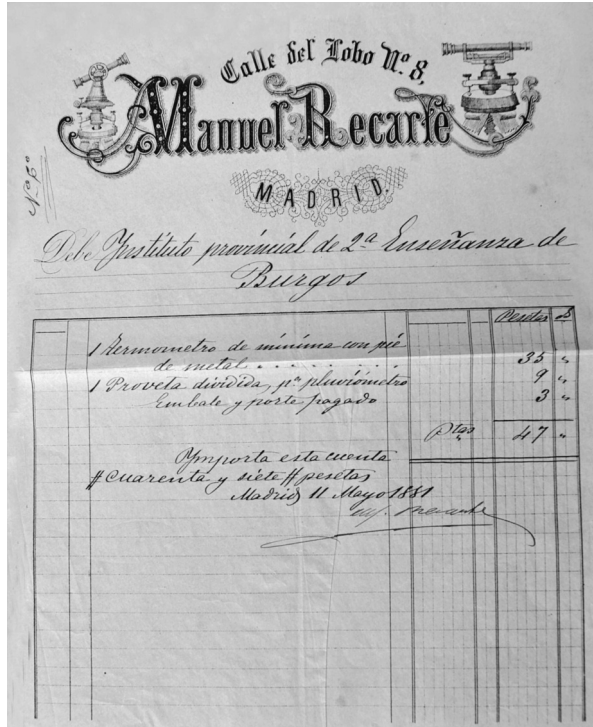 Calle del Lobo Nº 8,
Manuel Recarte
MADRID.
Debe Ynstituto provincial de 2ª Enseñanza de
Burgos
Pesetas
1 Termometro de minima con pié
de metal . . . . . . . . . . 35 "
1 Proveta dividida, pª pluviómetro 9 "
Embale y porte pagado 3 "
Ptas 47 "
Ymporta esta cuenta
# cuarenta y siete # pesetas
Madrid 11 Mayo 1881
Recarte